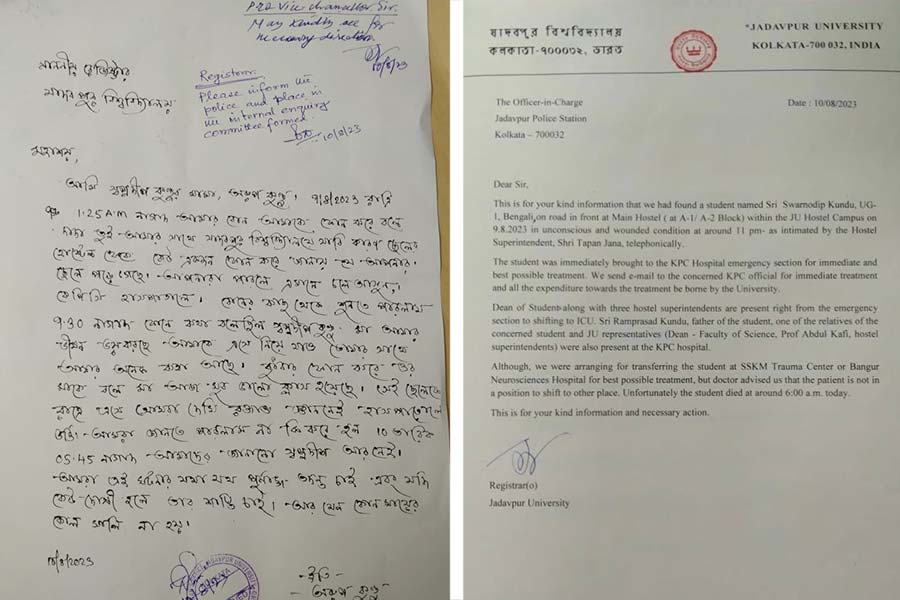 Pro Vice-Chancellor Sir.
May kindly see for
necessary direction
10/8/23
মাননীয় রেজিস্টার
যাদবপুর বিশ্ববিদ্যালয়
Registrar.
Please inform the
police and place in
the internal enquiry
committee formed.
10/8/23
মহাশয়,
আমি স্বপ্নদীপ কুন্ডুর মামা, অরূপ কুন্ডু। 9/8/2023 রাত্রি
1:25 A.M নাগাদ আমার বোন আমাকে ফোন করে বলে
দাদা তুই আমার সাথে যাদবপুর বিশ্ববিদ্যালয়ে যাবি কারণ ছেলের
হোস্টেল থেকে কেউ একজন ফোন করে জানায় যে আপনার
ছেলে পড়ে গেছে। আপনারা পারলে এখানে চলে আসুন
কেপিসি হাসপাতালে। বোনের কাছ থেকে শুনতে পারলাম
9:30 নাগাদ ফোনে কথা বলেছিল স্বপ্নদীপ কুন্ডু মা আমার
ভীষন ভয় করছে আমাকে এসে নিয়ে যাও তোমার সাথে
আমার অনেক কথা আছে। বুধবার ফোন করে ওর
মাকে বলে মা আজ খুব ভালো ক্লাস হয়েছে। সেই ছেলেকে
রাতে এসে আমরা দেখি রক্তাক্ত জ্ঞান নেই হাসপাতালে
ভর্তি। আমরা জানতে পারলাম না কি করে হল 10 তারিখ
05:45 নাগাদ আমাদের জানালো স্বপ্নদীপ আর নেই।
আমরা এই ঘটনার যথাযথ পূর্ণাঙ্গ তদন্ত চাই এবং যদি
কেউ দোষী হলে তার শাস্তি চাই। আর যেন কোন মায়ের
কোল খালি না হয়।
10/8/2023
JADAVPUR UNIVERSITY
ইতি
অরূপ কুন্ডু
যাদবপুর বিশ্ববিদ্যালয়
কলকাতা-৭০০০৩২, ভারত
*JADAVPUR UNIVERSITY
KOLKATA-700 032, INDIA
The Officer-in-Charge
Date : 10/08/2023
Jadavpur Police Station
Kolkata – 700032
Dear Sir,
This is for your kind information that we had found a student named Sri Swarnodip Kundu, UG-
1, Bengali,on road in front at Main Hostel ( at A-1/ A-2 Block) within the JU Hostel Campus on
9.8.2023 in unconscious and wounded condition at around 11 pm- as intimated by the Hostel
Superintendent, Shri Tapan Jana, telephonically.
The student was immediately brought to the KPC Hospital emergency section for immediate and
best possible treatment. We send e-mail to the concerned KPC official for immediate treatment
and all the expenditure towards the treatment be borne by the University.
Dean of Student along with three hostel superintendents are present right from the emergency
section to shifting to ICU. Sri Ramprasad Kundu, father of the student, one of the relatives of the
concerned student and JU representatives (Dean - Faculty of Science, Prof Abdul Kafi, hostel
superintendents) were also present at the KPC hospital.
Although, we were arranging for transferring the student at SSKM Trauma Center or Bangur
Neurosciences Hospital for best possible treatment, but doctor advised us that the patient is not in
a position to shift to other place. Unfortunately the student died at around 6:00 a.m. today.
This is for your kind information and necessary action.
Registrar(o)
Jadavpur University